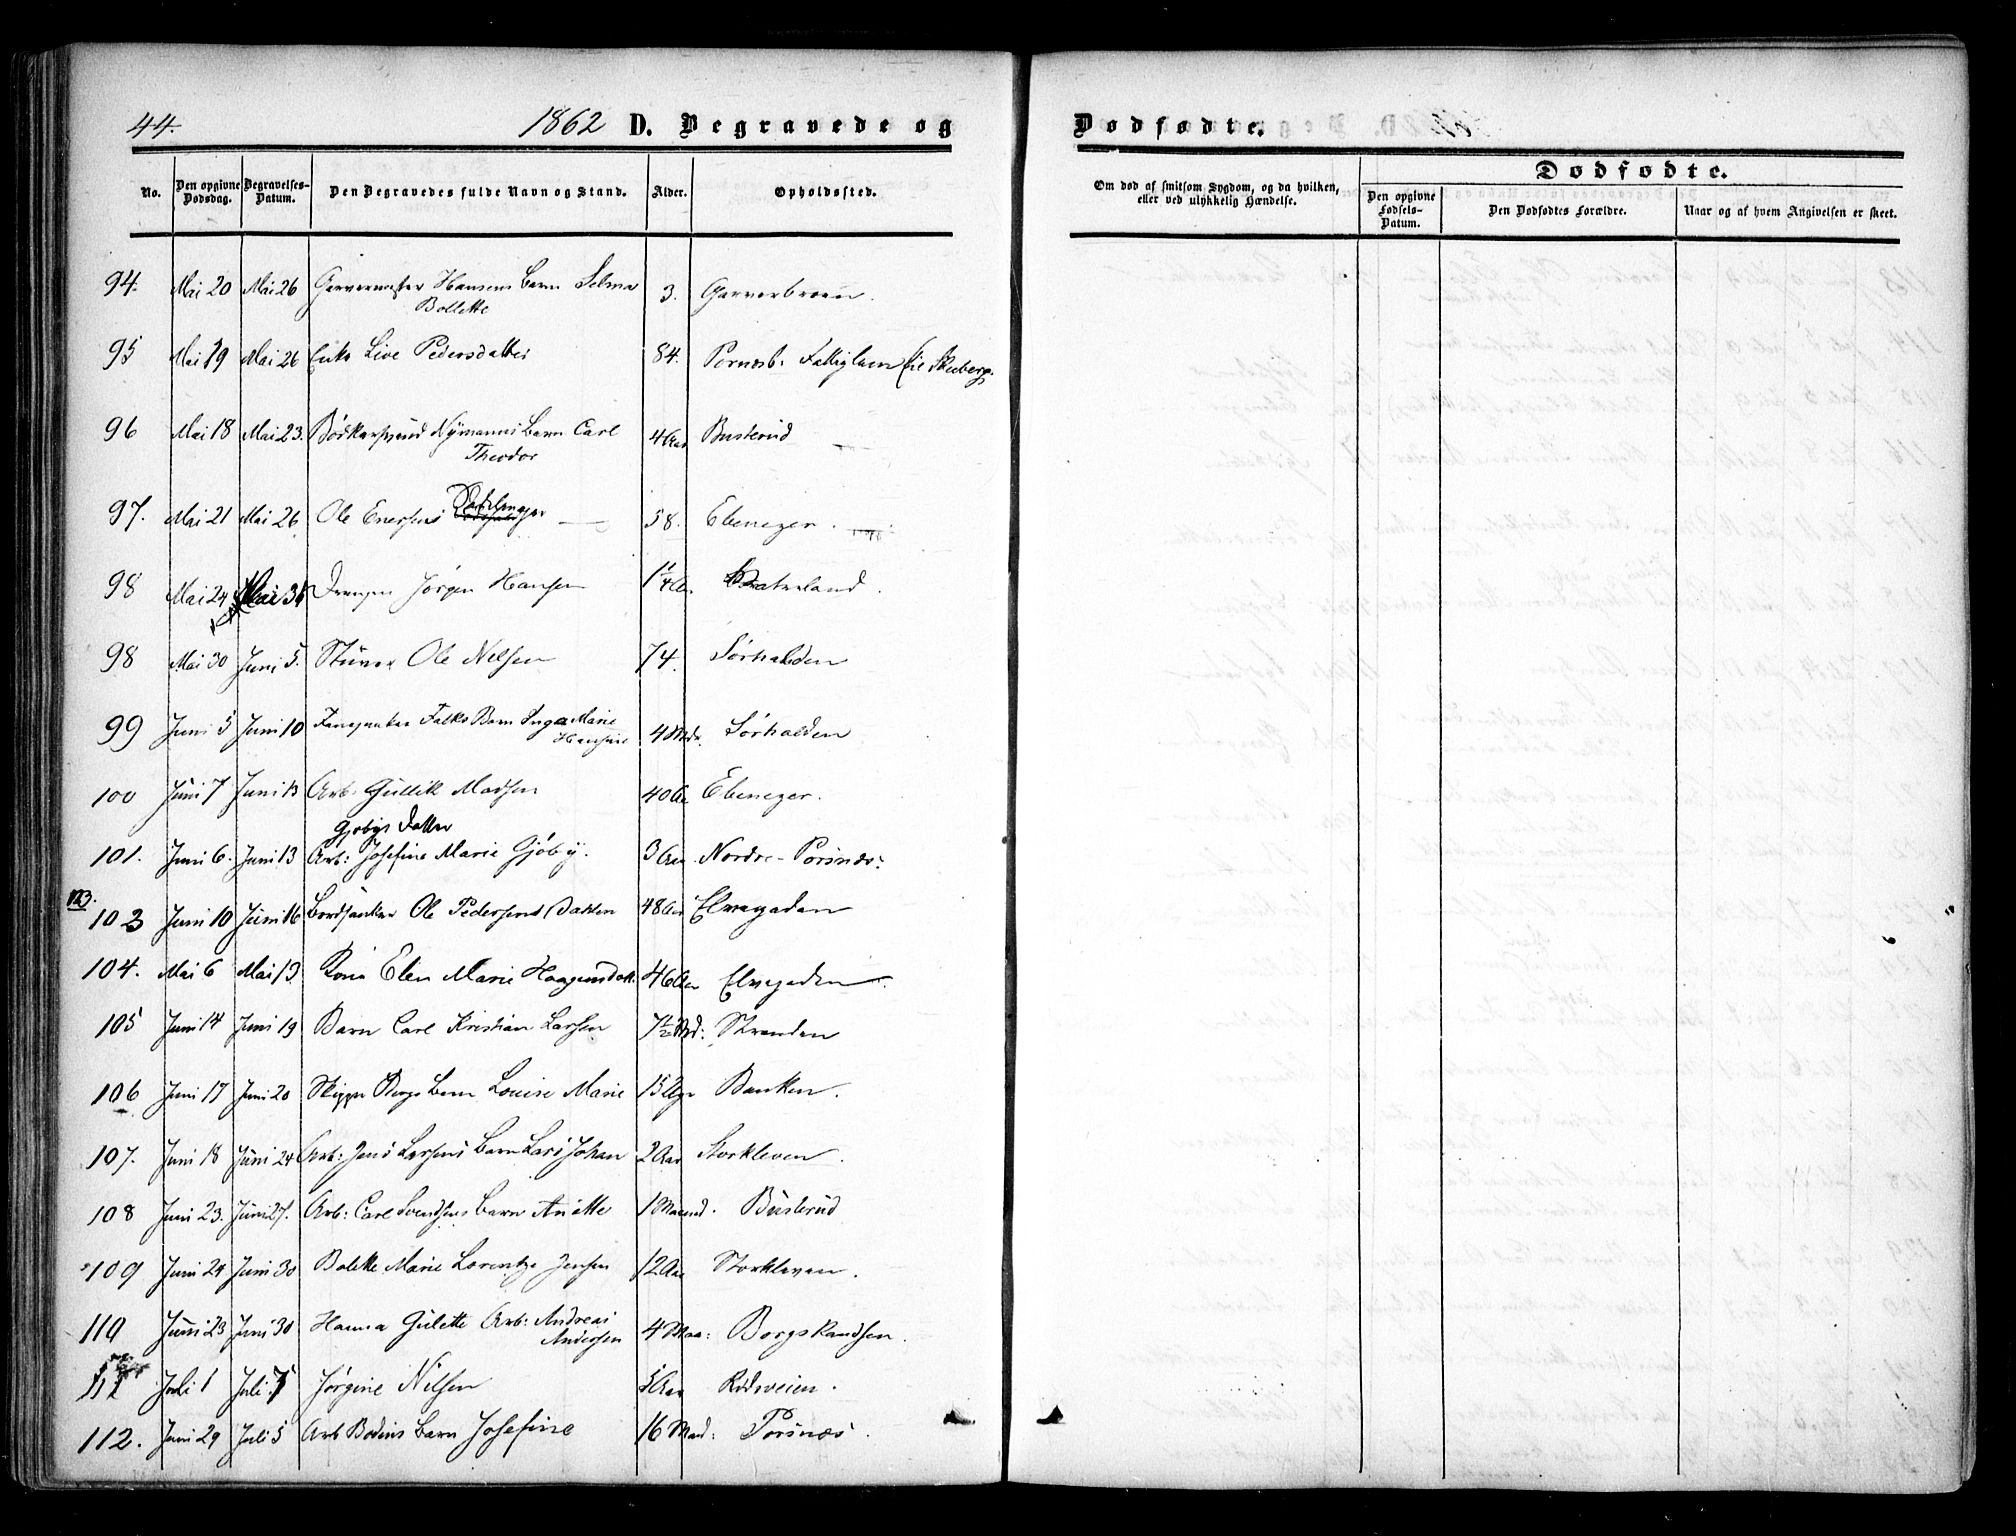 44.
1862 D. Begravede og
Dødfødte.
No.
Den opgivne Dødsdag.
Begravelses-Datum.
Den Begravedes fulde Navn og Stand.
Alder.
Opholdssted.
Om død af smitsom Sygdom, og da hvilken, eller ved ulykkelig Hændelse.
Dødfødte.
Den opgivne Fødsels-Datum.
Den Dødfødtes Forældre.
Naar og af hvem Angivelsen er skeet.
94. Mai 20 Mai 26 Garvermester Hansens Barn Selma 3.
Bollette
95 Mai 19 Mai 26 Enke Live Pedersdatter 84.
96 Mai 18 Mai 23. Bødkersvend Nymanns Barn Carl 4 Aar Busterud
Theodor
97. Mai 21 Mai 26 Ole Enersens 58. Ebenezer.
98 Mai 24 Mai 31 Drengen Jørgen Hansen 1 1/4 Aar Vaterland.
98 Mai 30 Juni 5. Stuver Ole Nelsen 74. Sørhalden
99 Juni 5 Juni 10 Falks Barn Inga Marie 4 Mdr. Sørhalden
Hansine
100 Juni 7 Juni 13 Arb: Gullik Madsen 40 Aar Ebenezer.
Gjøbys Datter
101. Juni 6. Juni 13 Arb: Josefine Marie Gjøby. 3 Aar Nordre-Porsnæs.
123.
103 Juni 10 Juni 16 Ole Pedersens Bakken 48 Aar Elvegaden
104. Mai 6 Mai 13 Kone Elen Marie Haagensdatt. 46 Aar Elvegaden.
105 Juni 14 Juni 19 Barn Carl Kristian Larsen 7 1/2 Md: Stranden
106 Juni 17 Juni 20 Skipper Bergs Barn Louise Marie 15 Uger Banken.
107. Juni 18 Juni 24 Arb: Jens Larsens Barn Lars Johan 2 Aar Storkleven.
108 Juni 23. Juni 27. Arb: Carl Svendsens Barn Anette 1 Maaned. Busterud
109 Juni 24 Juni 30 Bolette Marie Lorentze Jensen 12 Aar Storkleven.
110 Juni 23 Juni 30 Hanna Gulette Arb: Andreas 4 Maa:
Andersen
111 Juli 1 Juli 7 Jørgine Nilsen 5 Aar Rødsveien.
112. Juni 29 Juli 5 Arb Bodins Barn Josefine 16 Maad: Porsnæs.